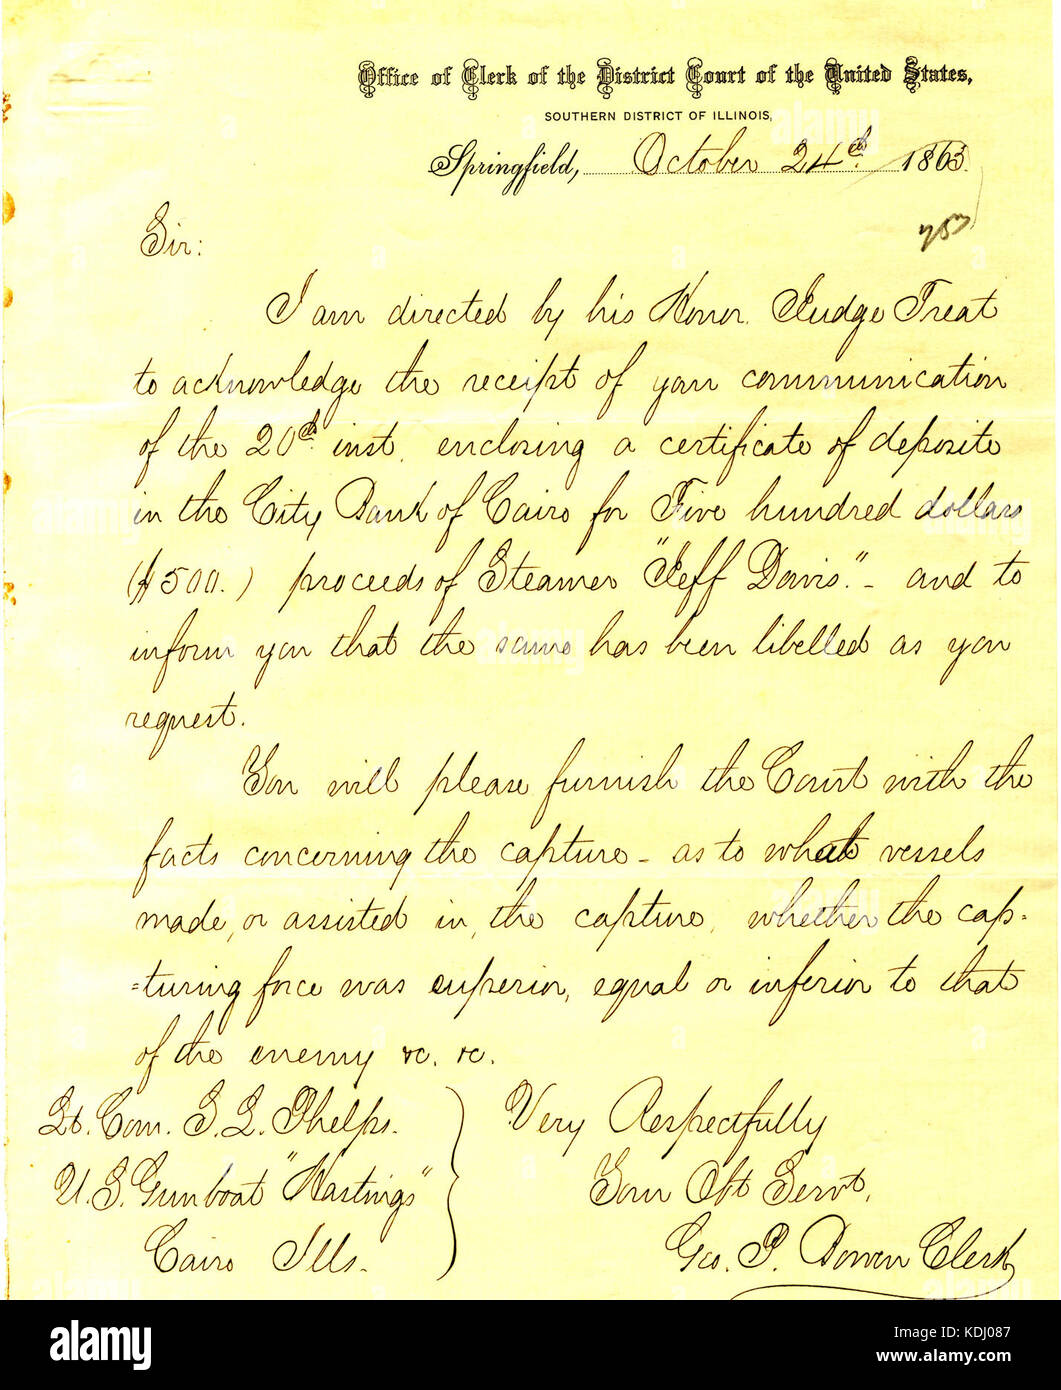 Office of Clerk of the District Court of the United States,
SOUTHERN DISTRICT OF ILLINOIS,
Springfield, October 24th 1863.
757
Sir:
I am directed by his Honor Judge Treat
to acknowledge the receipt of your communication
of the 20th inst. enclosing a certificate of deposite
in the City Bank of Cairo for Five hundred dollars
($500.) proceeds of Steamer "Jeff Davis." - and to
inform you that the same has been libelled as you
request.
You will please furnish the Court with the
facts concerning the capture - as to what vessels
made, or assisted in, the capture, whether the cap-
=turing force was superior, equal or inferior to that
of the enemy &c. &c.
Very Respectfully
Your Obt Servt,
Geo. P. Bowen Clerk
Lt. Com. S. L. Phelps.
U. S. Gunboat "Hastings"
Cairo Ills.
alamy
Image ID: KDJ087
www.alamy.com